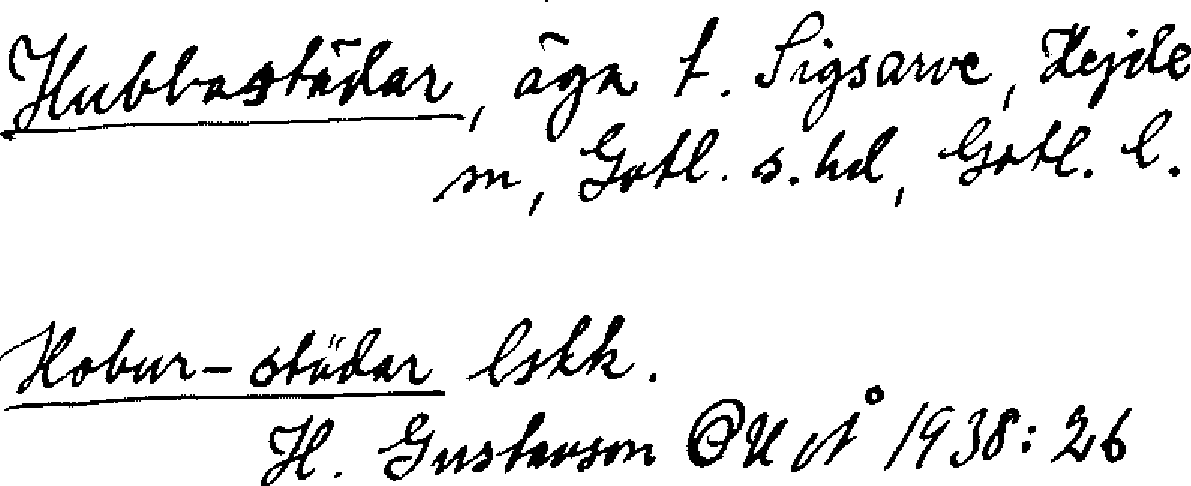 Hubbestädar, äga t. Sigsarve, Hejde
sn, Gotl. s. hd, Gotl. l.
Hobur-städar lskk.
H. Gustavson OUÅ 1938: 26